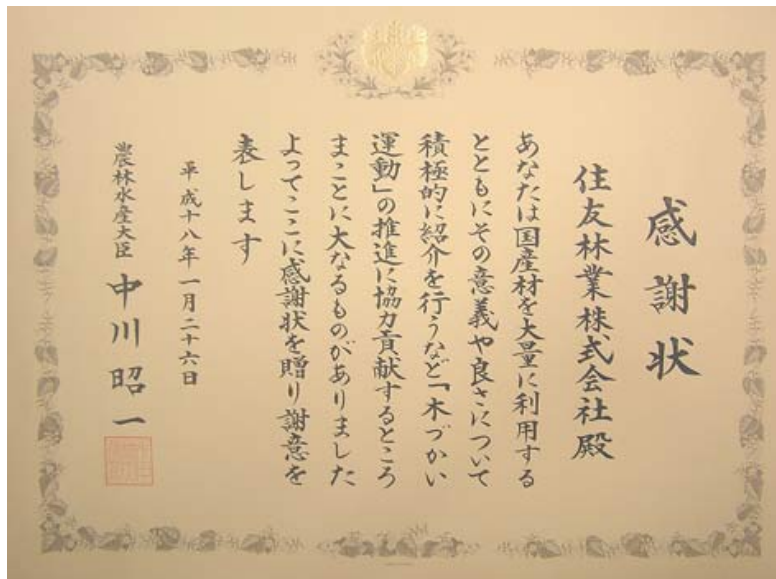 感謝状
住友林業株式会社殿
あなたは国産材を大量に利用する
とともにその意義や良さについて
積極的に紹介を行うなど「木づかい
運動」の推進に協力貢献するところ
まことに大なるものがありました
よってここに感謝状を贈り謝意を
表します
平成十八年一月二十六日
農林水産大臣 中川昭一